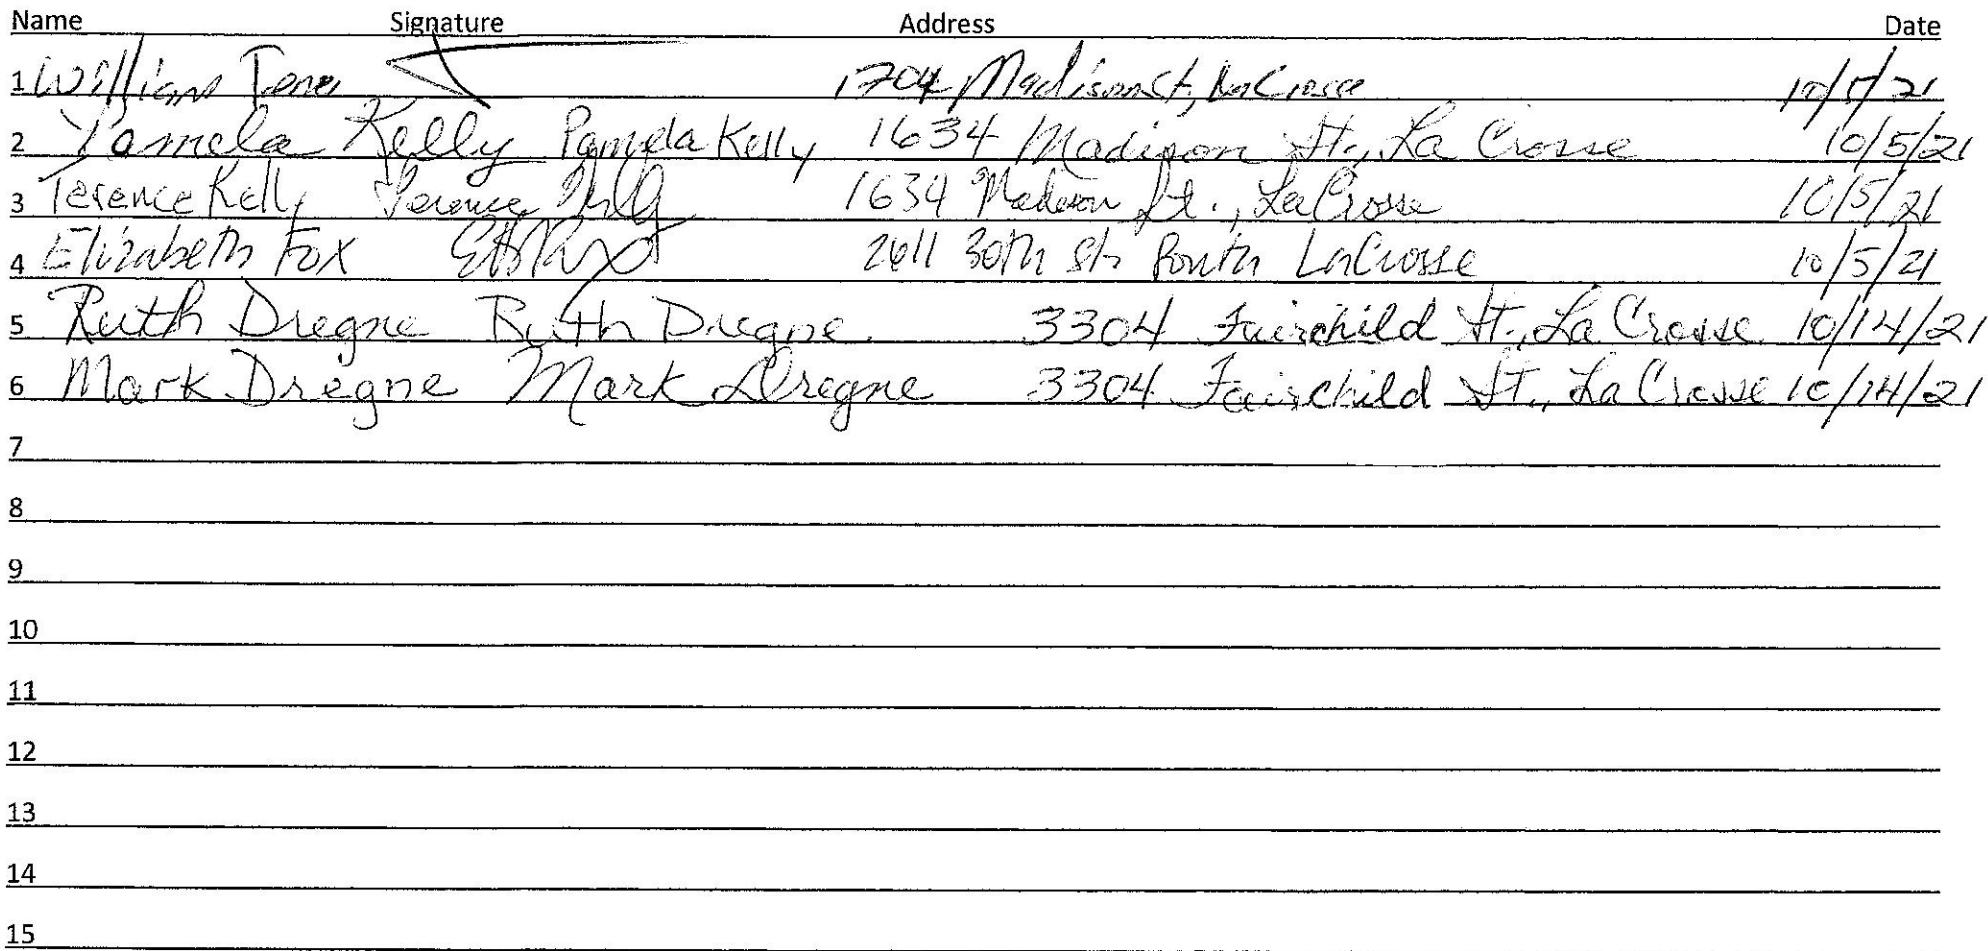 Name Signature Address Date
1 William 1704 Madison St, LaCrosse 10/5/21
2 Pamela Kelly Pamela Kelly 1634 Madison St., La Crosse 10/5/21
3 Terence Kelly Terence Kelly 1634 Madison St., La Crosse 10/5/21
4 Elizabeth Fox 2611 30th St South LaCrosse 10/5/21
5 Ruth Dregne Ruth Dregne 3304 Fairchild St., La Crosse 10/14/21
6 Mark Dregne Mark Dregne 3304 Fairchild St., La Crosse 10/14/21
7
8
9
10
11
12
13
14
15